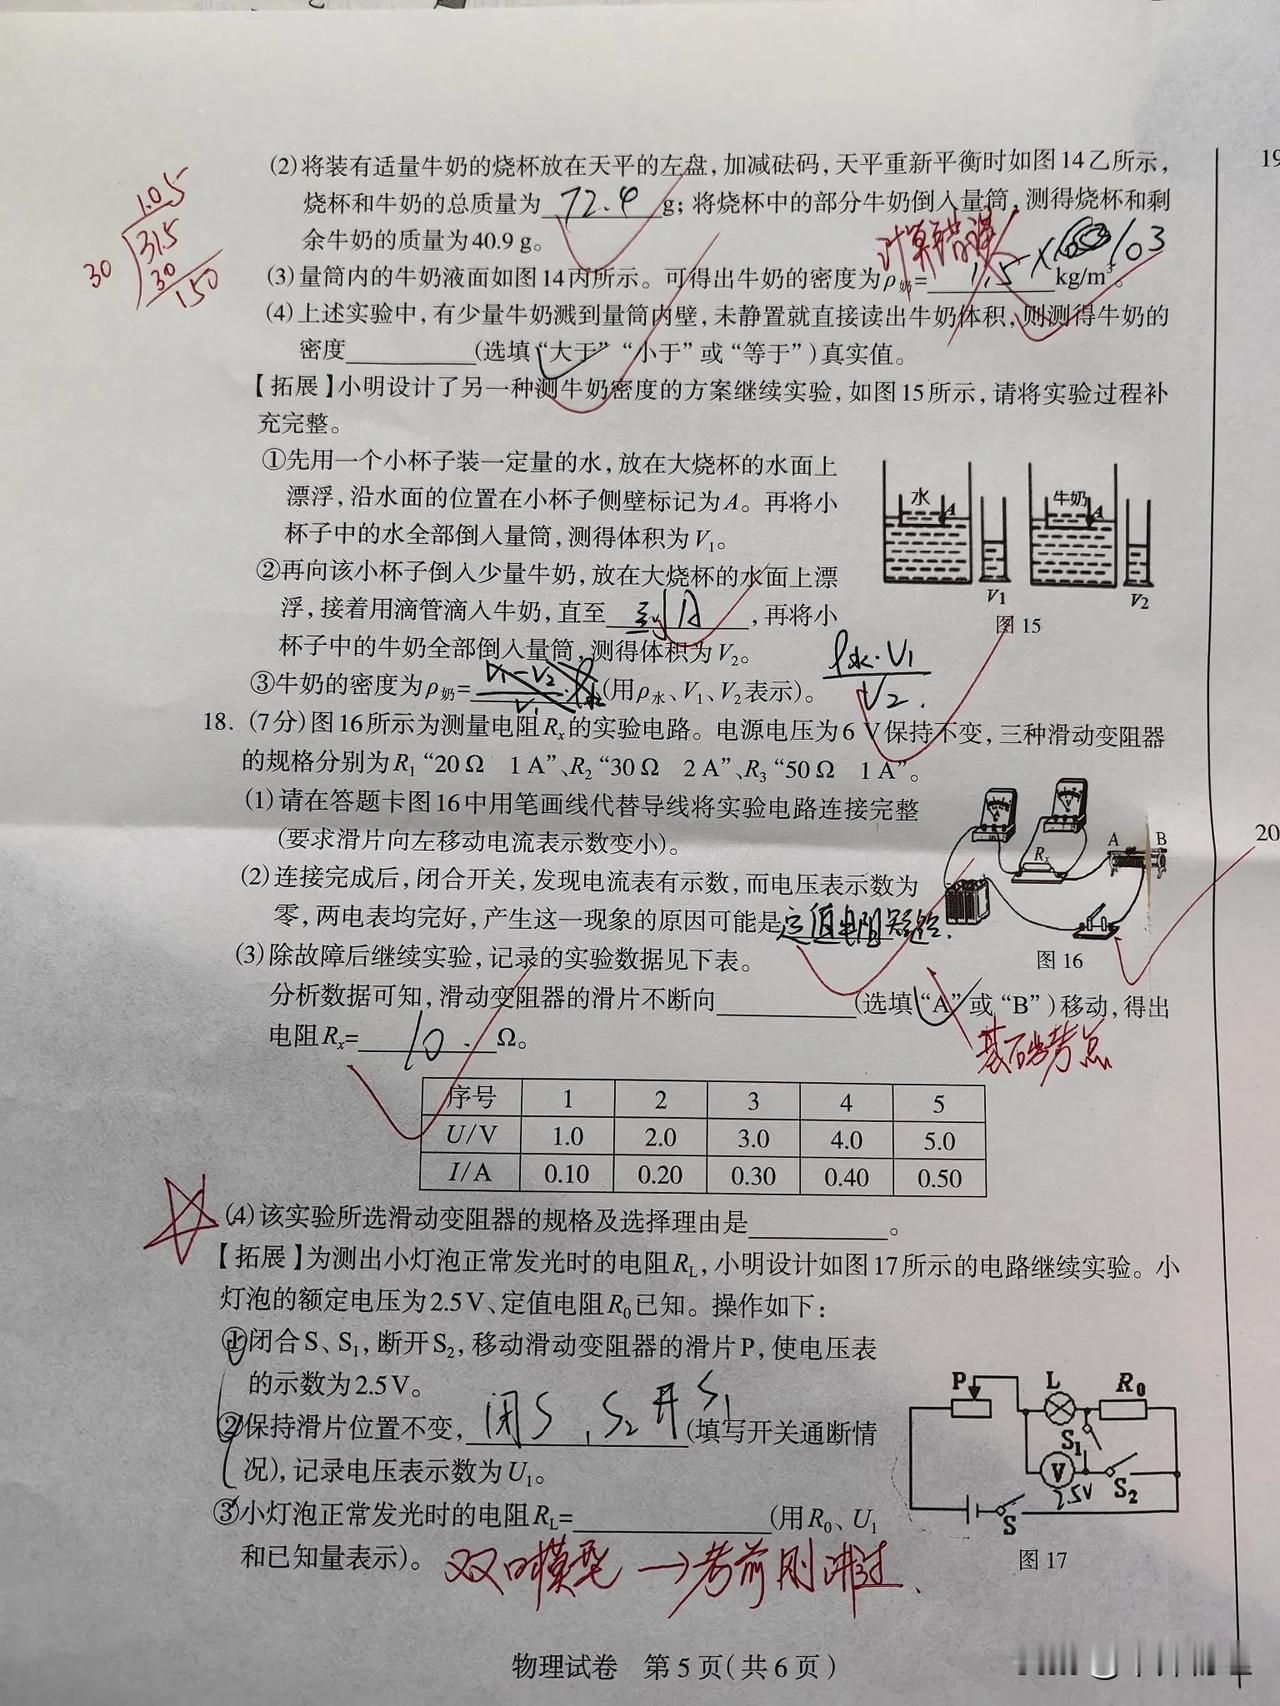 (2)将装有适量牛奶的烧杯放在天平的左盘,加减砝码,天平重新平衡时如图14乙所示,
烧杯和牛奶的总质量为 72.4 g;将烧杯中的部分牛奶倒入量筒,测得烧杯和剩
余牛奶的质量为40.9 g。
1.05
30 31.5
30
150
计算错误
(3)量筒内的牛奶液面如图14丙所示。可得出牛奶的密度为ρ奶= 1.15×10³ kg/m³。
(4)上述实验中,有少量牛奶溅到量筒内壁,未静置就直接读出牛奶体积,则测得牛奶的
密度____(选填“大于”“小于”或“等于”)真实值。
【拓展】小明设计了另一种测牛奶密度的方案继续实验,如图15所示,请将实验过程补
充完整。
①先用一个小杯子装一定量的水,放在大烧杯的水面上
漂浮,沿水面的位置在小杯子侧壁标记为A。再将小
杯子中的水全部倒入量筒,测得体积为V₁。
②再向该小杯子倒入少量牛奶,放在大烧杯的水面上漂
浮,接着用滴管滴入牛奶,直至 到A ,再将小
杯子中的牛奶全部倒入量筒,测得体积为V₂。
③牛奶的密度为ρ奶=____(用ρ水、V₁、V₂表示)。
ρ水·V₁
V₂.
水 A V₁ 牛奶 A V₂
图15
18.(7分)图16所示为测量电阻Rx的实验电路。电源电压为6 V保持不变,三种滑动变阻器
的规格分别为R₁“20 Ω 1 A”、R₂“30 Ω 2 A”、R₃“50 Ω 1 A”。
(1)请在答题卡图16中用笔画线代替导线将实验电路连接完整
(要求滑片向左移动电流表示数变小)。
(2)连接完成后,闭合开关,发现电流表有示数,而电压表示数为
零,两电表均完好,产生这一现象的原因可能是 定值电阻短路.
Rx A B
图16
(3)除故障后继续实验,记录的实验数据见下表。
分析数据可知,滑动变阻器的滑片不断向____(选填“A”或“B”)移动,得出
电阻Rx= 10 . Ω。
基础考点
序号 1 2 3 4 5
U/V 1.0 2.0 3.0 4.0 5.0
I/A 0.10 0.20 0.30 0.40 0.50
(4)该实验所选滑动变阻器的规格及选择理由是____。
【拓展】为测出小灯泡正常发光时的电阻RL,小明设计如图17所示的电路继续实验。小
灯泡的额定电压为2.5 V、定值电阻R₀已知。操作如下:
①闭合S、S₁,断开S₂,移动滑动变阻器的滑片P,使电压表
的示数为2.5 V。
②保持滑片位置不变, 闭S,S₂开S₁ (填写开关通断情
况),记录电压表示数为U₁。
③小灯泡正常发光时的电阻RL=____(用R₀、U₁
和已知量表示)。
P L R₀
S₁
V S₂
2.5V
S
图17
双口模型→考前刚讲过.
物理试卷 第5页(共6页)
19
20